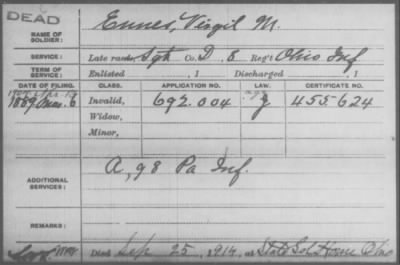 DEAD
NAME OF SOLDIER: Ennes, Virgil M.
SERVICE: Late rank, Sgt Co. D, 8 Reg't Ohio Inf
TERM OF SERVICE: Enlisted , 1 Discharged , 1
DATE OF FILING. CLASS. APPLICATION NO. LAW. CERTIFICATE NO.
1889 Mar. 6 Invalid, 692.004 g 455-624
Widow,
Minor,
ADDITIONAL SERVICES: A, 98 Pa Inf.
REMARKS:
Died Sep 25, 1914, at State Sol Home Ohio